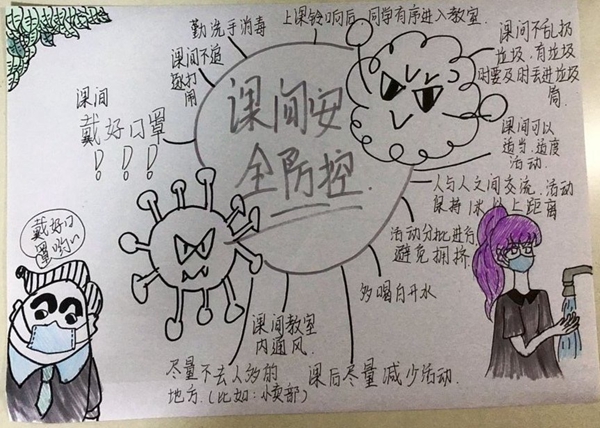 勤洗手消毒
上课铃响后，同学有序进入教室.
课间不追
逐打
闹
课间不乱扔
垃圾.有垃圾
时要及时丢进垃圾
筒.
课间
戴好口罩
！！！
课间安
全防控.
课间可以
适当.适度
活动.
人与人之间交流.活动
保持1米以上距离
活动分批进行
避免拥挤
多喝白开水
戴好口
罩哟~
课间教室
内通风.
尽量不去人多的
地方.(比如:小卖部)
课后尽量减少活动.